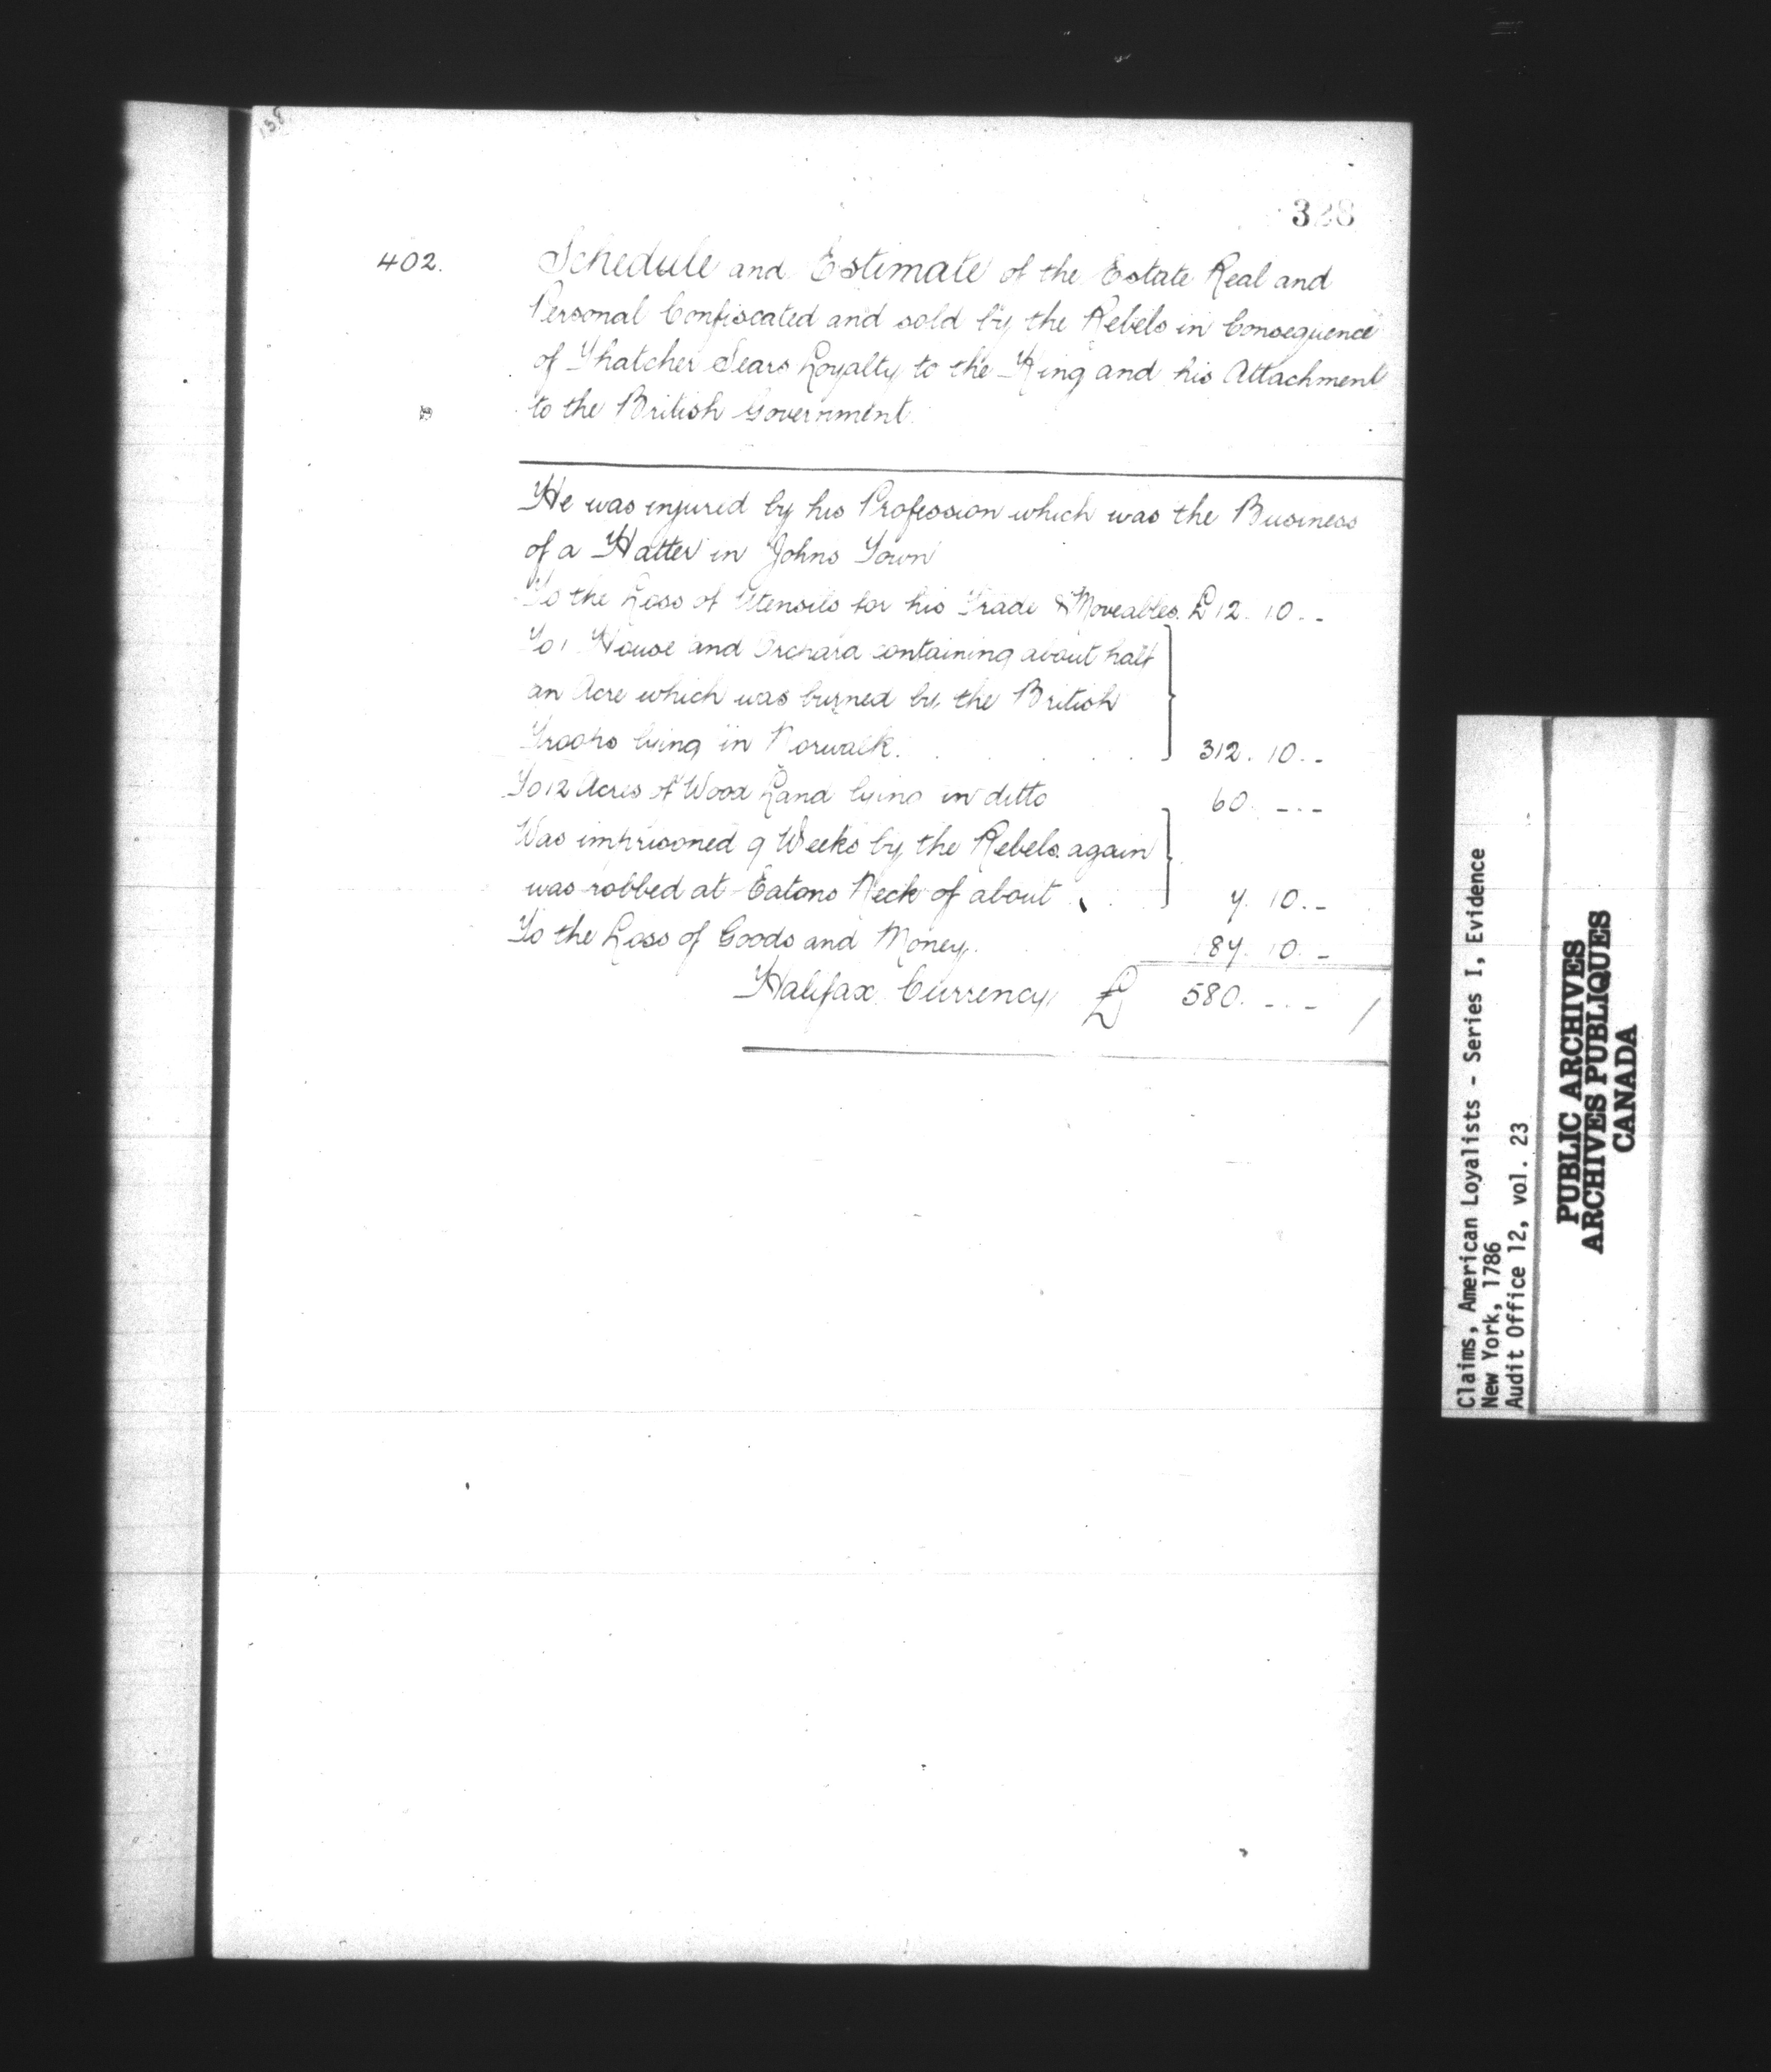 328
402. Schedule and Estimate of the Estate Real and
Personal Confiscated and sold by the Rebels in Consequence
of Thatcher Sears Loyalty to the King and his Attachment
to the British Government.
He was injured by his Profession which was the Business
of a Hatter in Johns Town
To the Loss of Utensils for his Trade & Moveables. £ 12. 10. -
To 1 House and Orchard containing about half
an Acre which was burned by the British
Troops lying in Norwalk. 312. 10. -
To 12 Acres of Wood Land lying in ditto 60. - . -
Was imprisoned 9 Weeks by the Rebels again
was robbed at Eatons Neck of about 7. 10. -
To the Loss of Goods and Money. 187. 10. -
Halifax Currency £ 580. - . -
Claims, American Loyalists - Series I, Evidence
New York, 1786
Audit Office 12, vol. 23
PUBLIC ARCHIVES
ARCHIVES PUBLIQUES
CANADA